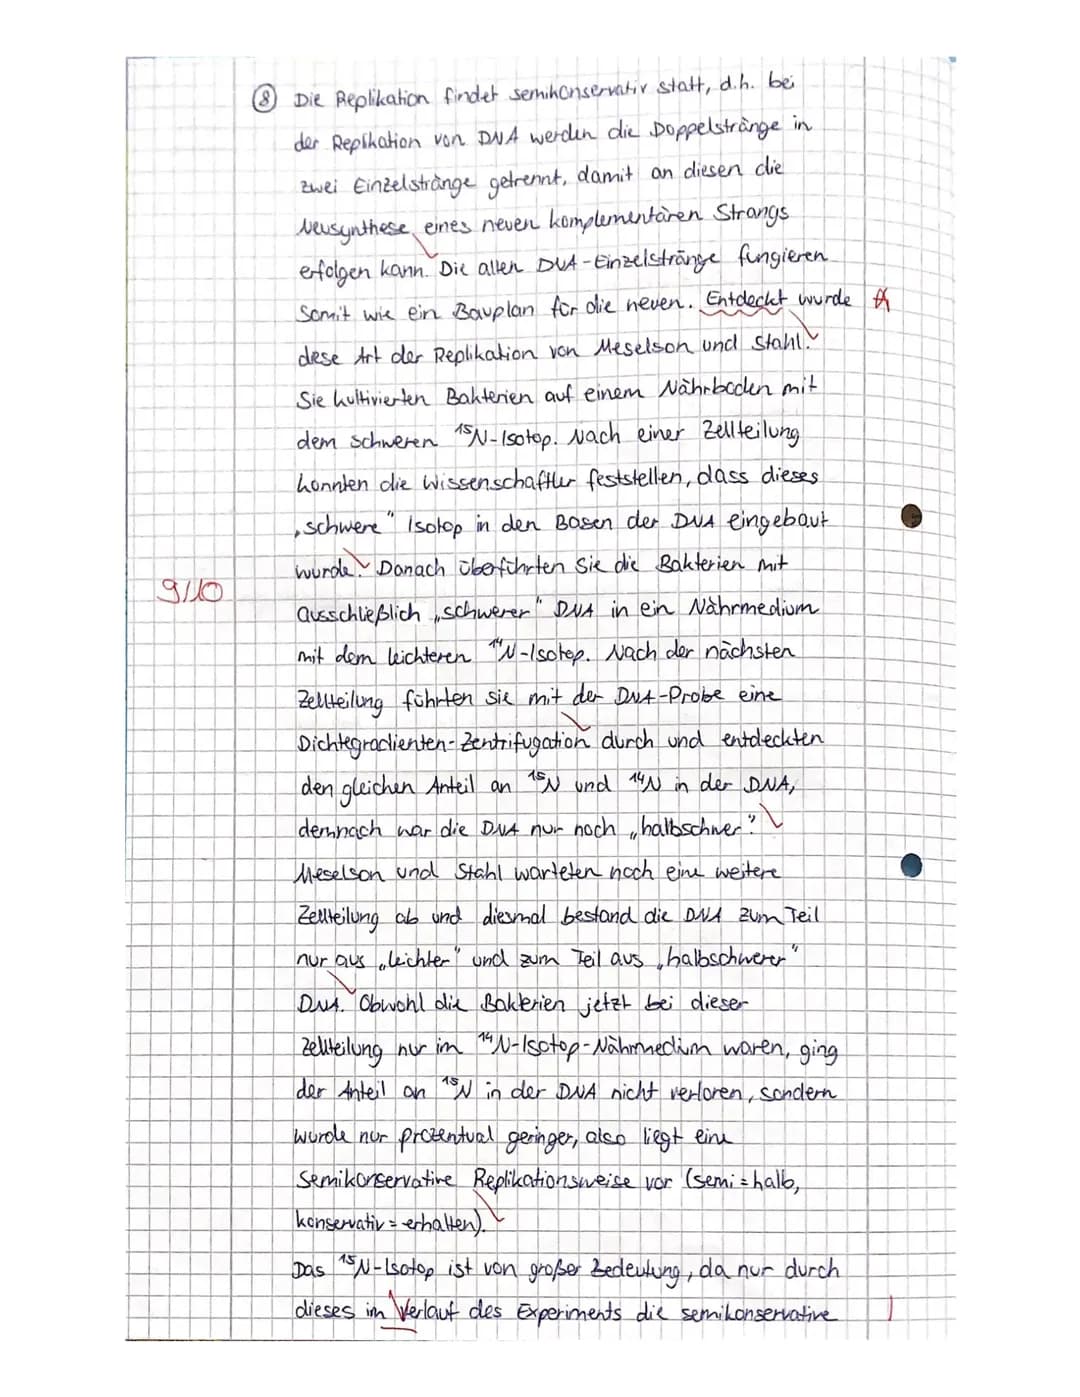 ⑧ Die Replikation findet semikonservativ statt, d.h. bei
der Replikation von DNA werden die Doppelstränge in
zwei Einzelstränge getrennt, damit an diesen die
Neusynthese eines neuen komplementären Strangs
erfolgen kann. Die alten DNA-Einzelstränge fungieren
somit wie ein Bauplan für die neuen. Entdeckt wurde A
diese Art der Replikation von Meselson und Stahl.
Sie kultivierten Bakterien auf einem Nährboden mit
dem schweren ¹⁵N-Isotop. Nach einer Zellteilung
konnten die Wissenschaftler feststellen, dass dieses
„schwere" Isotop in den Basen der DNA eingebaut
wurde. Danach überführten Sie die Bakterien mit
9/10
ausschließlich „schwerer" DNA in ein Nährmedium
mit dem leichteren ¹⁴N-Isotop. Nach der nächsten
Zellteilung führten sie mit der DNA-Probe eine
Dichtegradienten-Zentrifugation durch und entdeckten
den gleichen Anteil an ¹⁵N und ¹⁴N in der DNA,
demnach war die DNA nur noch „halbschwer".
Meselson und Stahl warteten noch eine weitere
Zellteilung ab und diesmal bestand die DNA zum Teil
nur aus „leichter" und zum Teil aus „halbschwerer"
DNA. Obwohl die Bakterien jetzt bei dieser
Zellteilung nur im ¹⁴N-Isotop-Nährmedium waren, ging
der Anteil an ¹⁵N in der DNA nicht verloren, sondern
wurde nur prozentual geringer, also liegt eine
Semikonservative Replikationsweise vor (semi = halb,
konservativ = erhalten).
Das ¹⁵N-Isotop ist von großer Bedeutung, da nur durch
dieses im Verlauf des Experiments die semikonservative